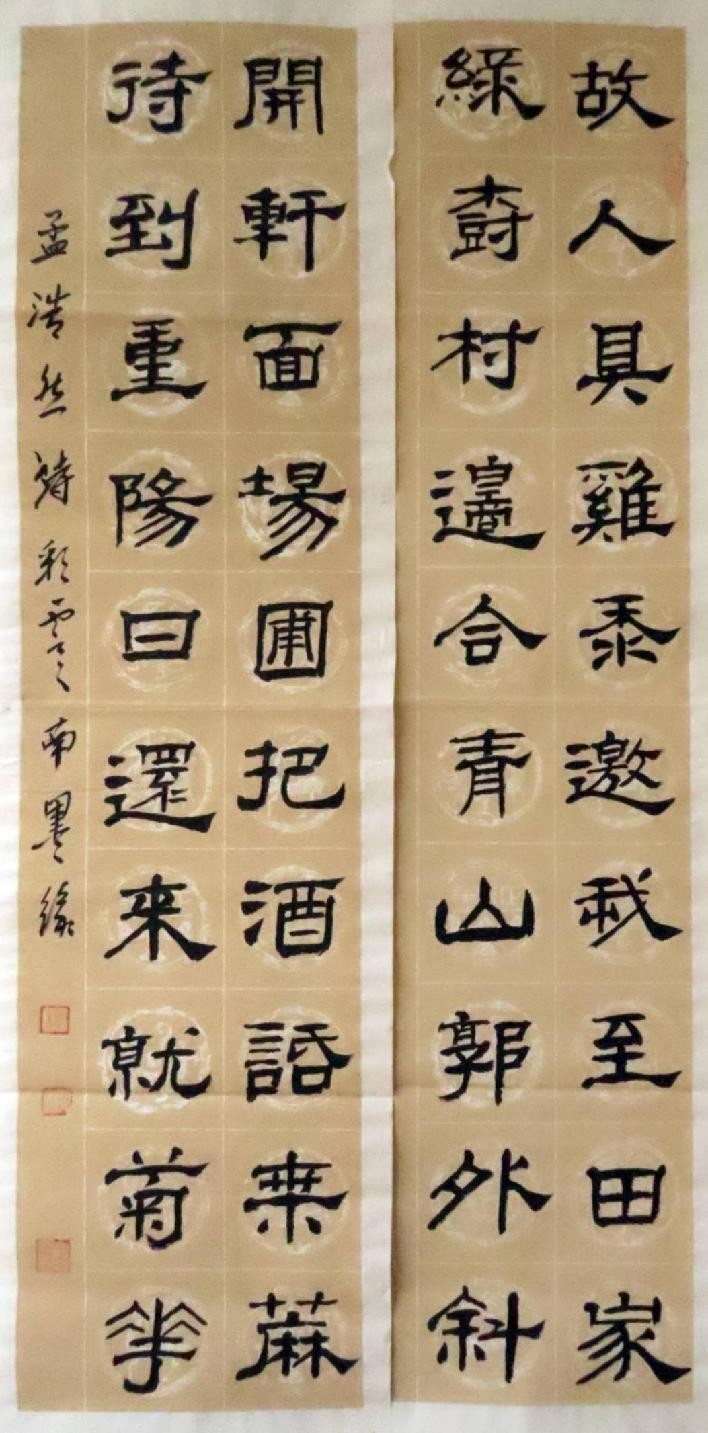 故人具雞黍邀我至田家
綠樹村邊合青山郭外斜
開軒面場圃把酒話桑蔴
待到重陽日還來就菊華
孟浩然詩彩雲之南墨緣